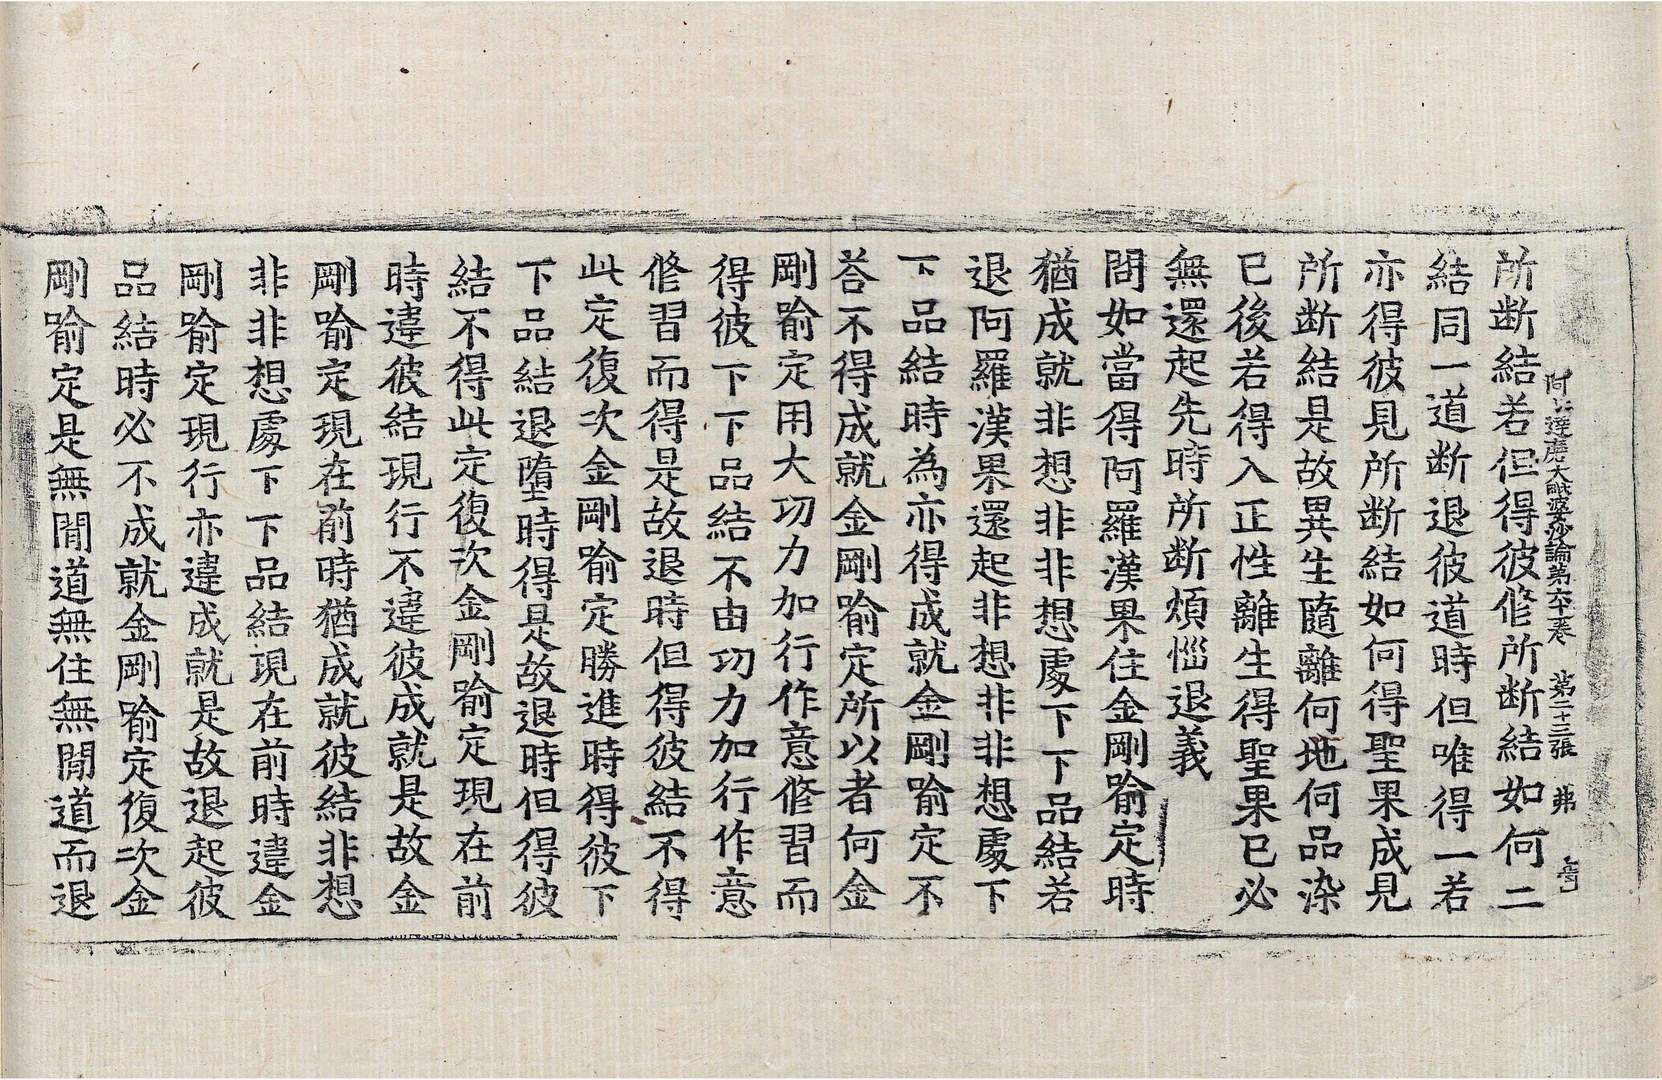 阿毗達磨大毗婆沙論第六十卷 第二十三張 弟
所断結若但得彼修所断結如何二
結同一道断退彼道時但唯得一若
亦得彼見所断結如何得聖果成見
所断結是故異生隨離何地何品染
已後若得入正性離生得聖果已必
無還起先時所断煩惱退義
問如當得阿羅漢果住金剛喻定時
猶成就非想非非想處下下品結若
退阿羅漢果還起非想非非想處下
下品結時為亦得成就金剛喻定不
荅不得成就金剛喻定所以者何金
剛喻定用大功力加行作意修習而
得彼下下品結不由功力加行作意
修習而得是故退時但得彼結不得
此定復次金剛喻定勝進時得彼下
下品結退墮時得是故退時但得彼
結不得此定復次金剛喻定現在前
時違彼結現行不違彼成就是故金
剛喻定現在前時猶成就彼結非想
非非想處下下品結現在前時違金
剛喻定現行亦違成就是故退起彼
品結時必不成就金剛喻定復次金
剛喻定是無間道無住無間道而退